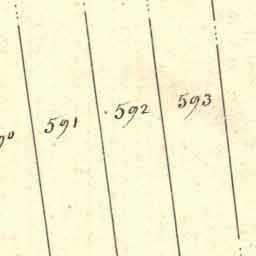 591
592
593